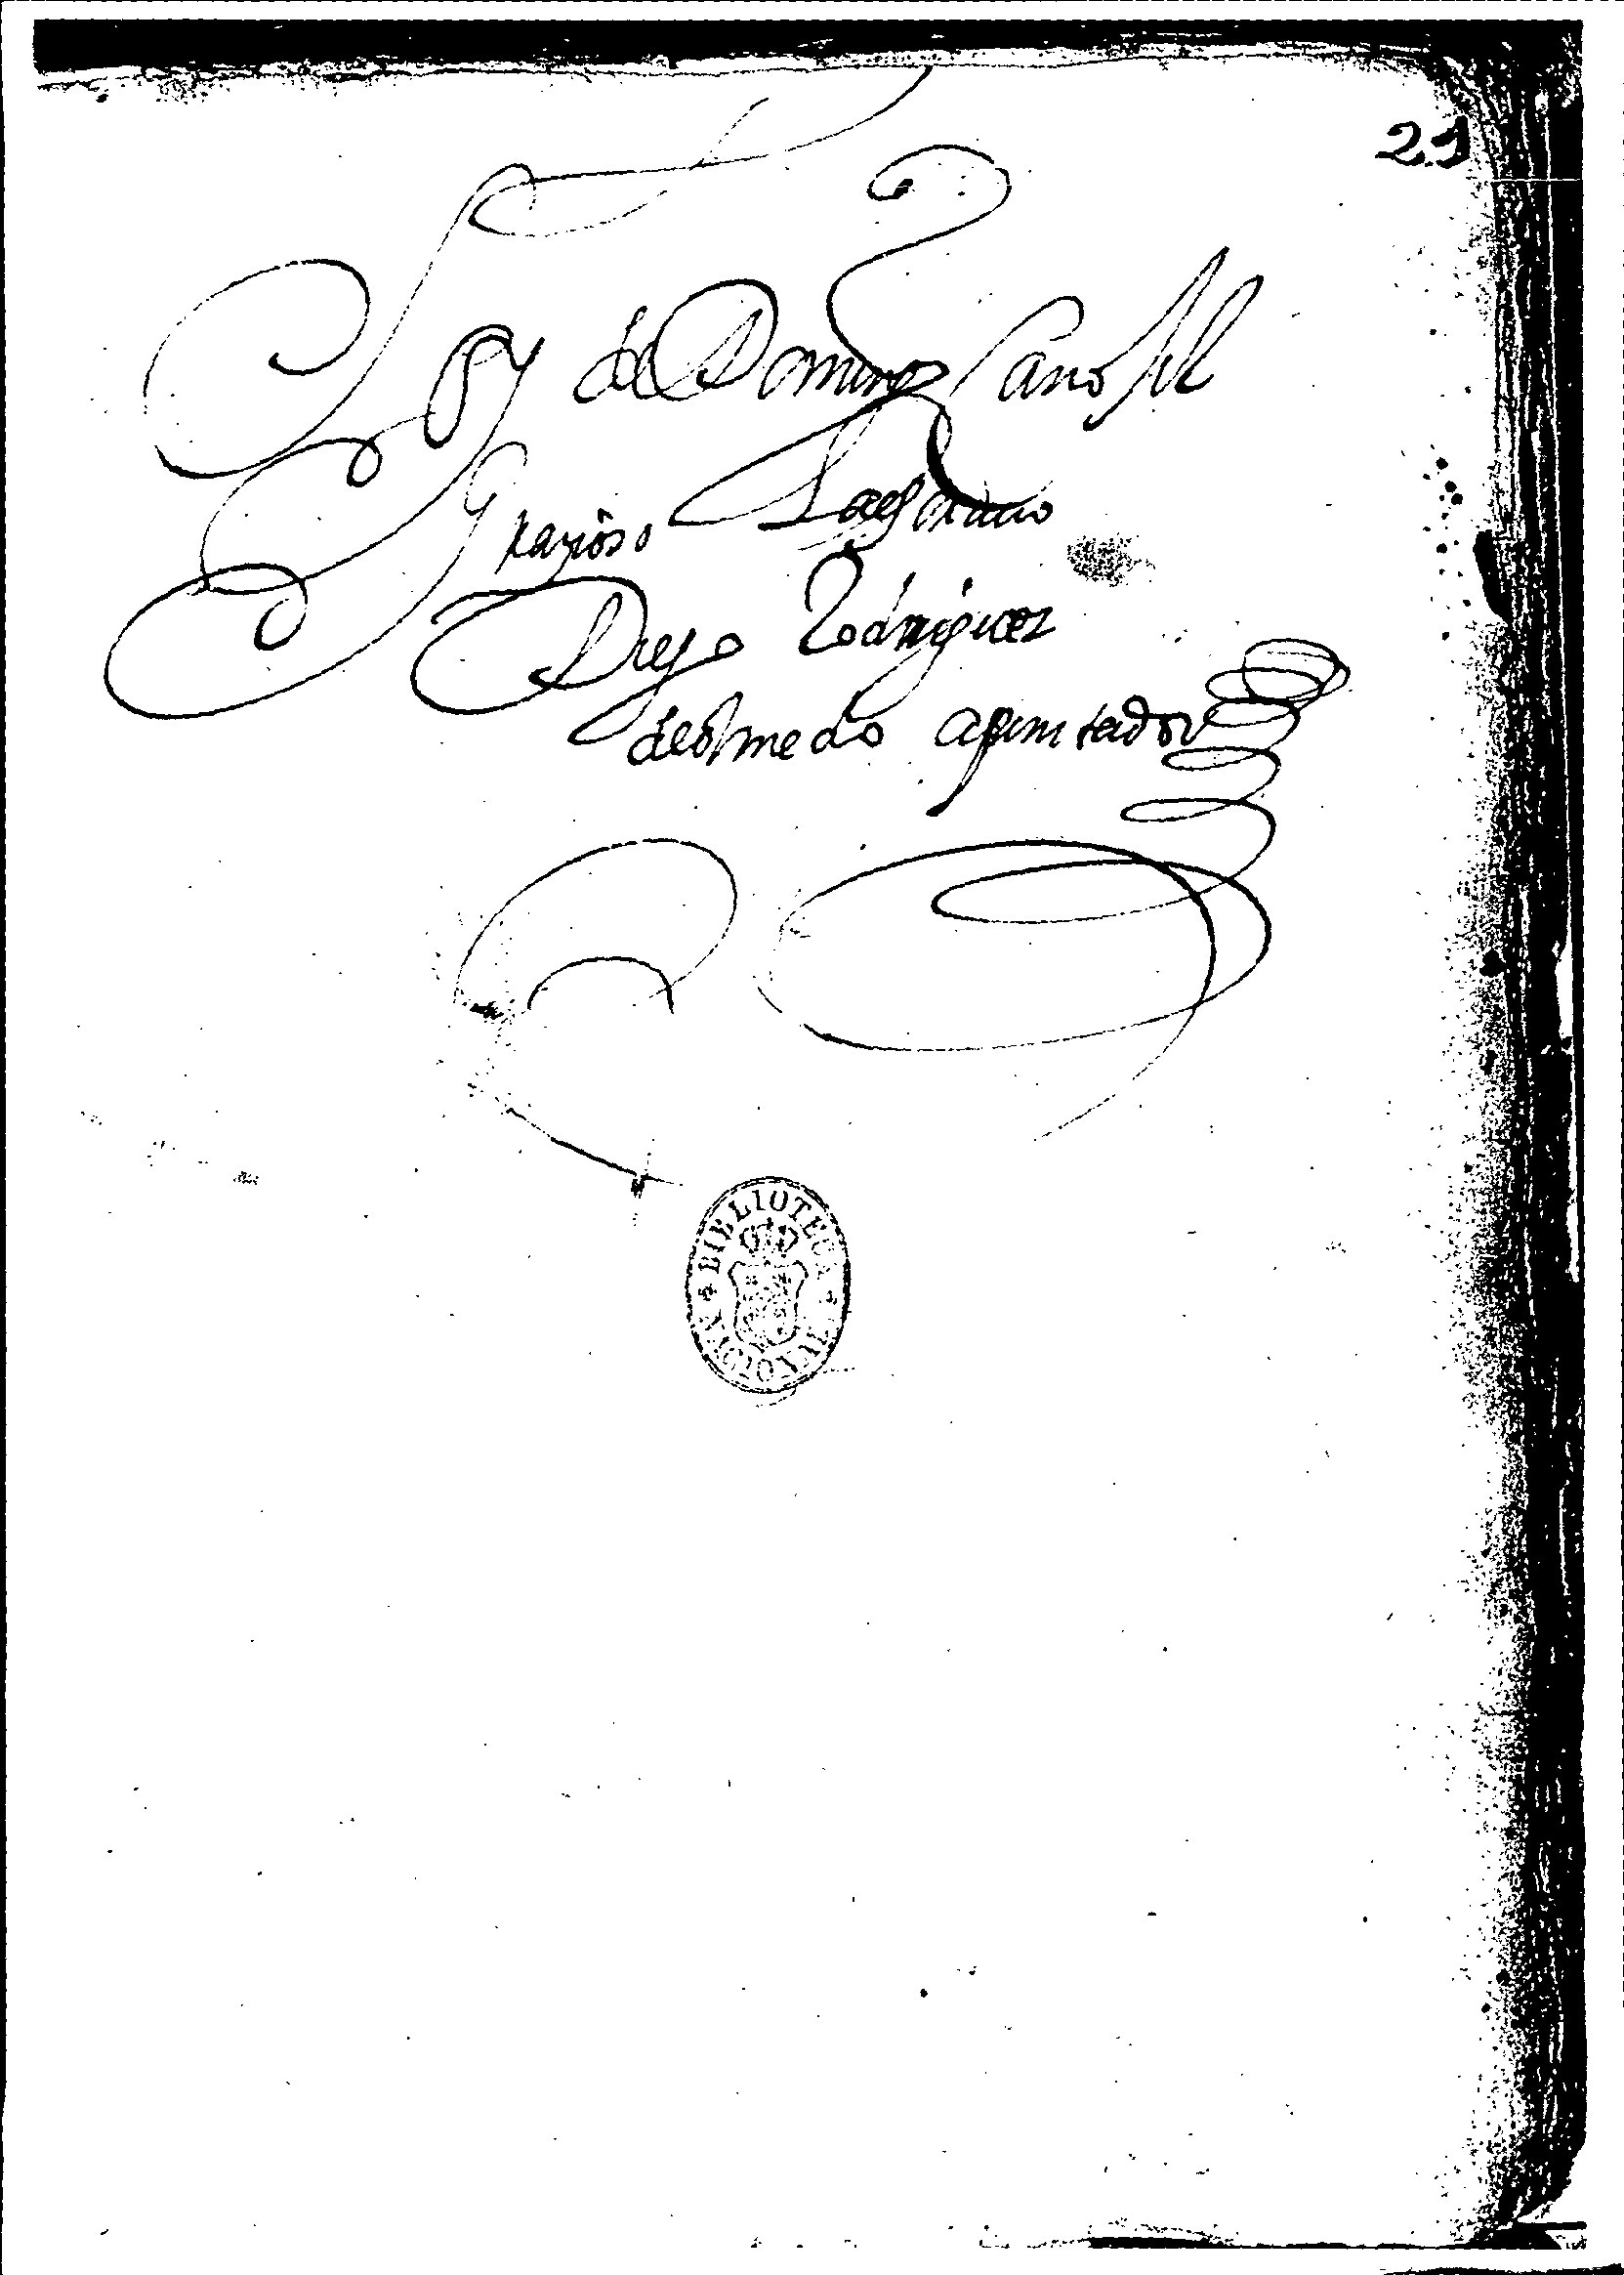 21
Soy de Domingo Cano fil
Grazioso
Diego Rodriguez
deolmedo apuntador
BIBLIOTECA NACIONAL